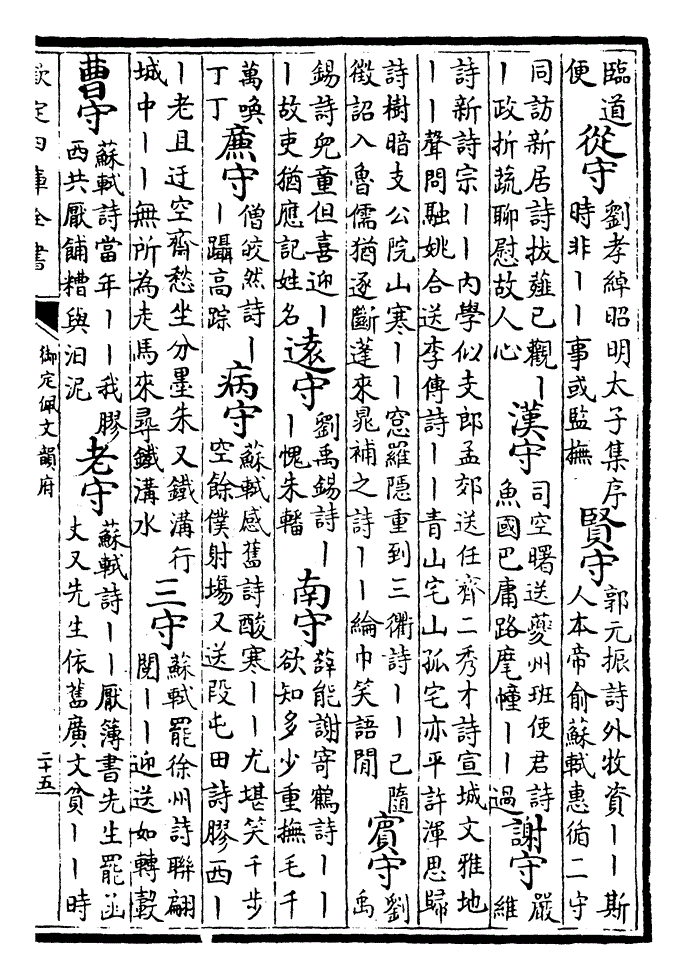 臨道
便
從守
劉孝綽昭明太子集序
時非丨丨事或監撫
賢守
郭元振詩外牧資丨丨斯
人本帝俞蘇軾惠循二守
同訪新居詩拔薤已觀丨
丨政折蔬聊慰故人心
漢守
司空曙送夔州班使君詩
魚國巴庸路麾幢丨丨過
謝守
嚴
維
詩新詩宗丨丨内學似支郎孟郊送任齊二秀才詩宣城文雅地
丨丨聲問融姚合送李傳詩丨丨青山宅山孤宅亦平許渾思歸
詩樹暗支公院山寒丨丨窓羅隱重到三衢詩丨丨已隨
徵詔入魯儒猶逐斷蓬來晁補之詩丨丨綸巾笑語閒
賓守
劉
禹
錫詩兒童但喜迎丨
丨故吏猶應記姓名
遠守
劉禹錫詩丨
丨愧朱轓
南守
薛能謝寄鶴詩丨丨
欲知多少重撫毛千
萬喚
丁丁
廉守
僧皎然詩丨
丨躡高踪
病守
蘇軾感舊詩酸寒丨丨尤堪笑千步
空餘僕射塲又送段屯田詩膠西丨
丨老且迂空齋愁坐分墨朱又鐵溝行
城中丨丨無所為走馬來尋鐵溝水
三守
蘇軾罷徐州詩聯翩
閱丨丨迎送如轉轂
曹守
蘇軾詩當年丨丨我膠
西共厭餔糟與汩泥
老守
蘇軾詩丨丨厭簿書先生罷函
丈又先生依舊廣文貧丨丨時
欽定四庫全書
御定佩文韻府
二十五